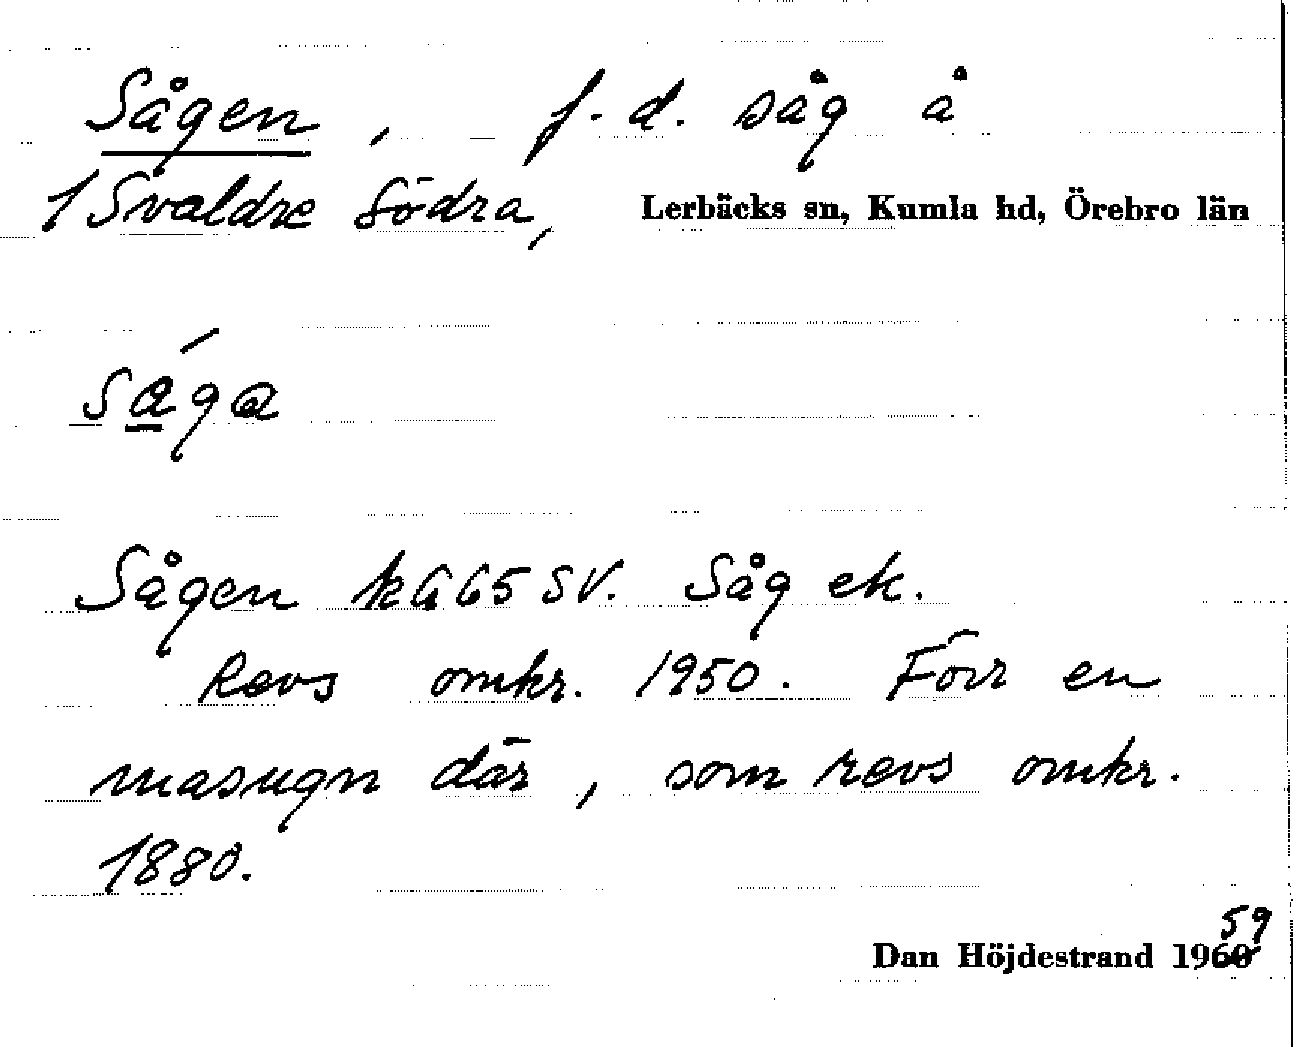 Sågen, f. d. såg å
1 Svaldre Södra, Lerbäcks sn, Kumla hd, Örebro län
såga
Sågen kG65 SV. Såg ek.
Revs omkr. 1950. Förr en
masugn där, som revs omkr.
1880.
59
Dan Höjdestrand 1960